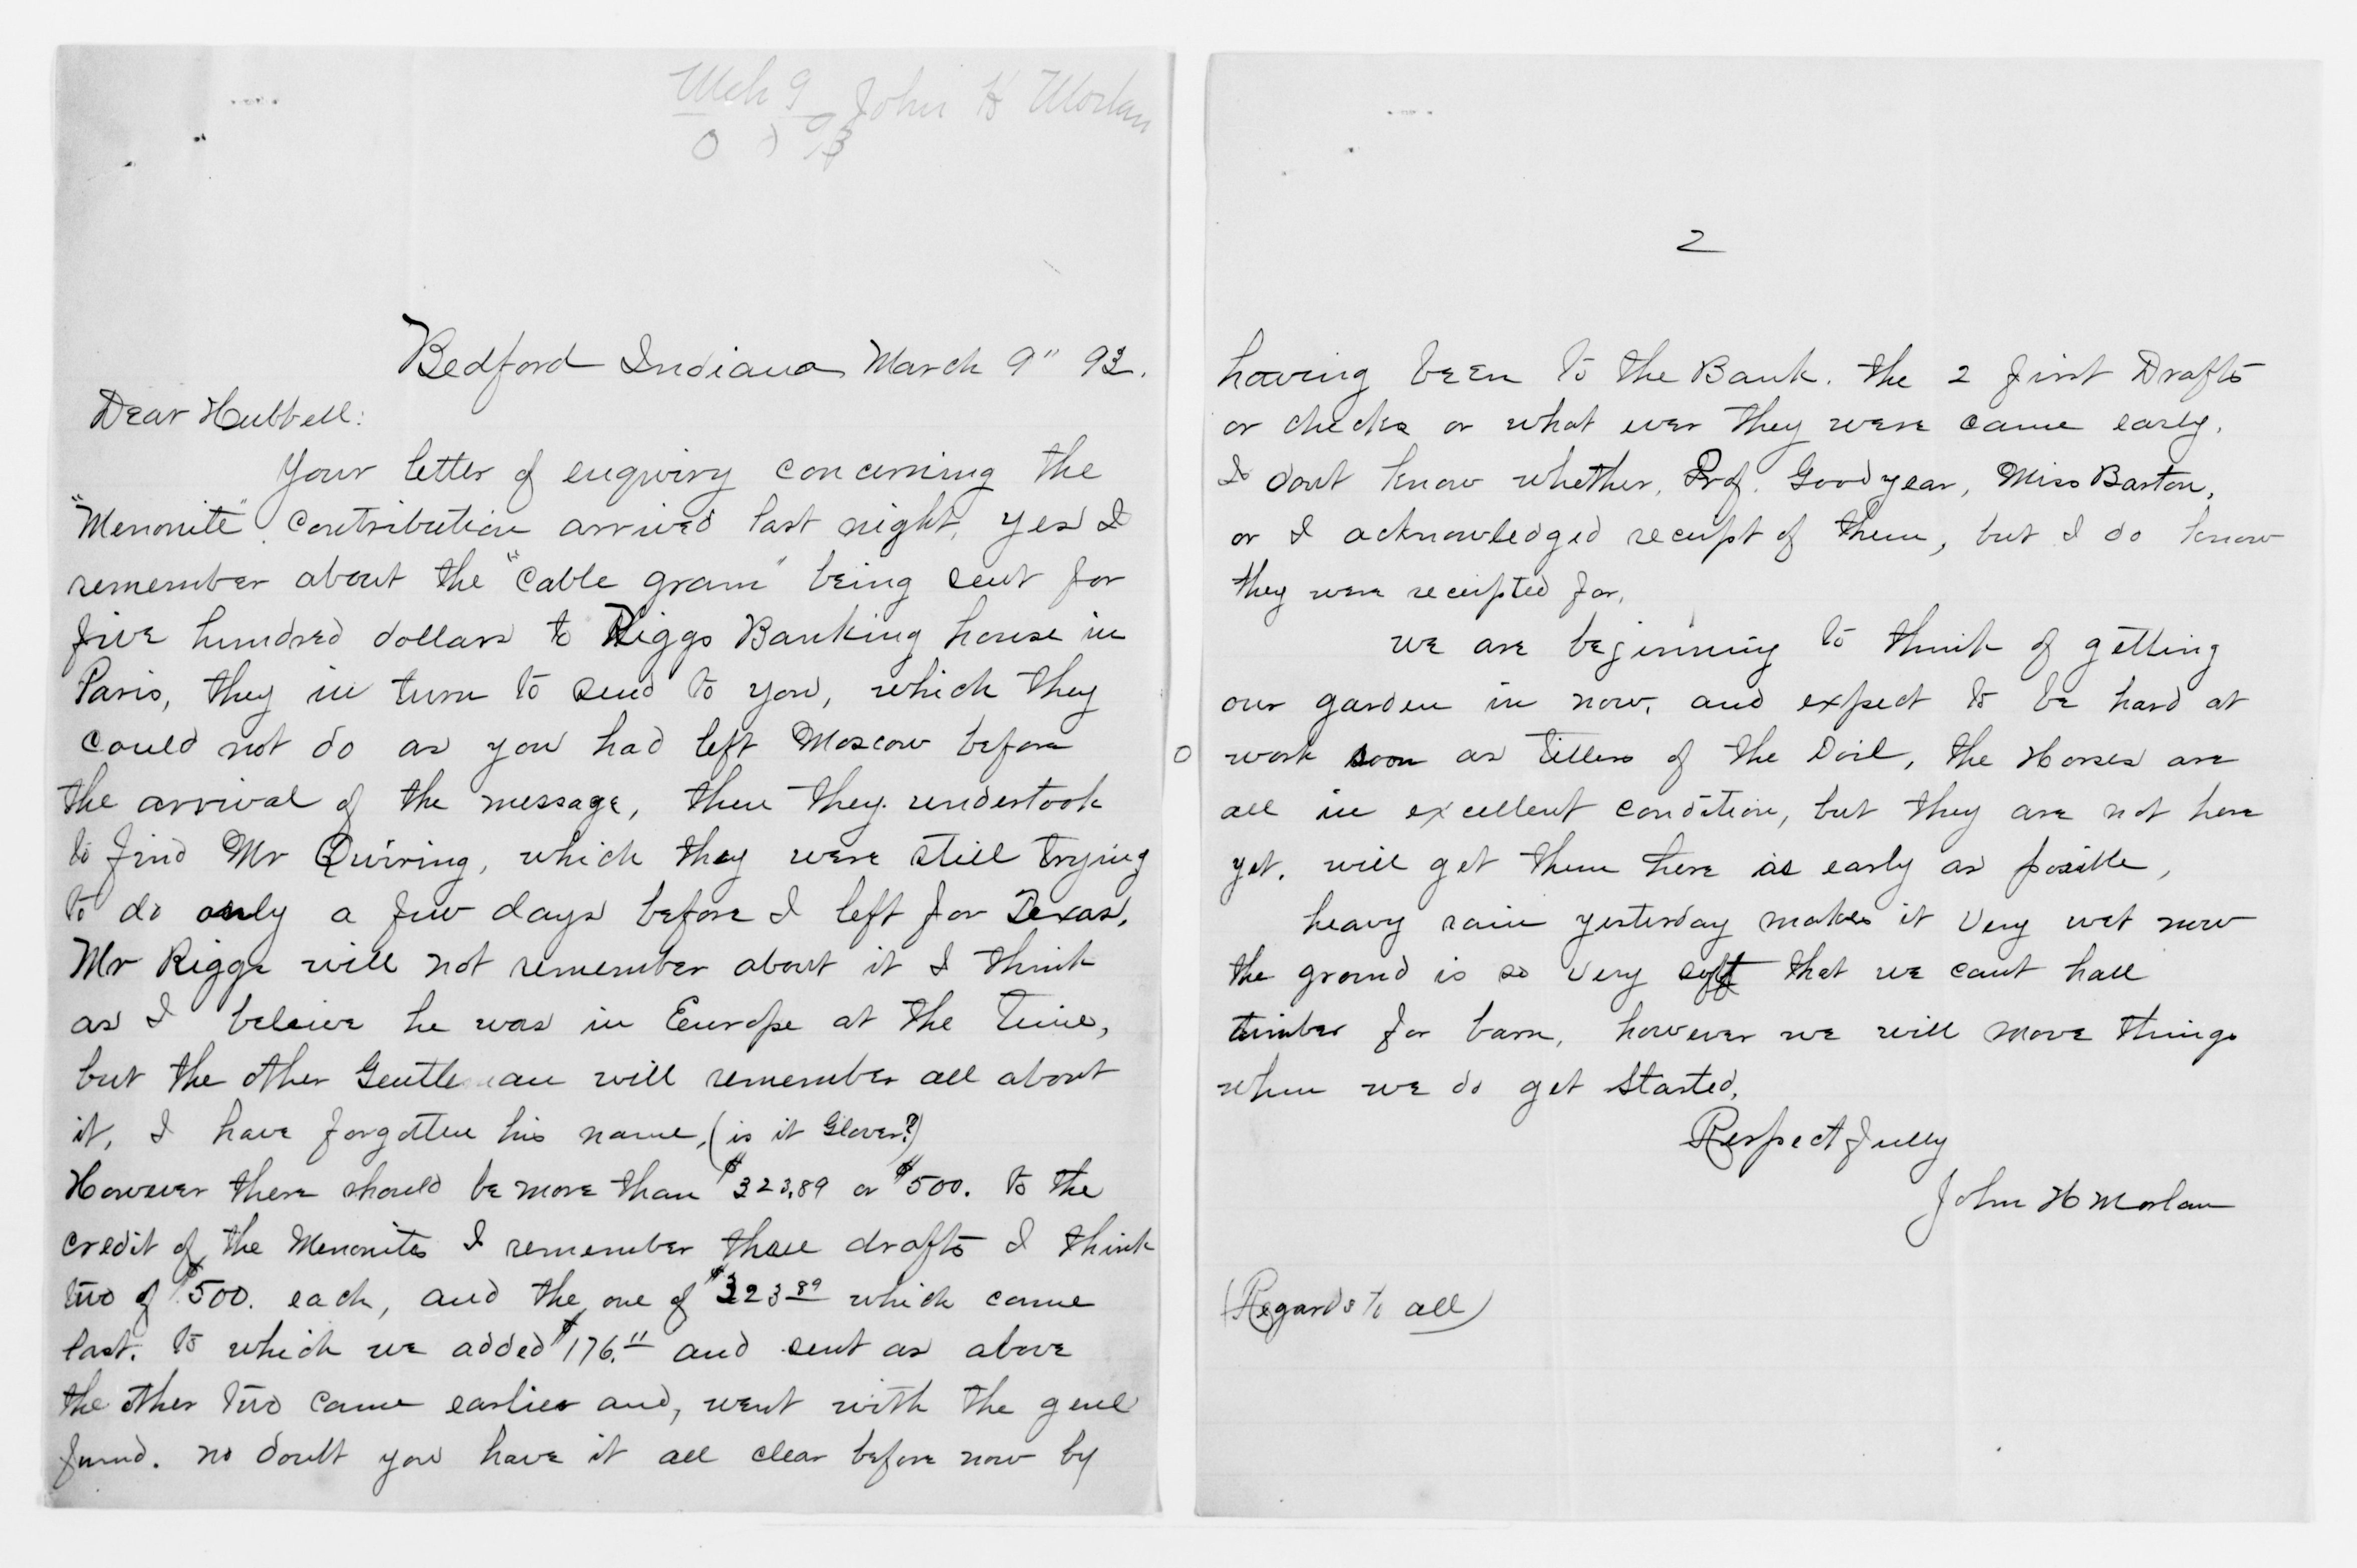 Mch 9 John H Morlan
93
Bedford Indiana March 9" 93.
Dear Hubbell:
Your letter of enquiry concerning the
"Menonite" Contribution arrived last night, yes I
remember about the "Cable gram" being sent for
five hundred dollars to Riggs Banking house in
Paris, they in turn to send to you, which they
could not do as you had left Moscow before
the arrival of the message, then they undertook
to find Mr Quiring, which they were still trying
to do only a few days before I left for Texas.
Mr Riggs will not remember about it I think
as I beleive he was in Europe at the time,
but the other Gentleman will remember all about
it, I have forgotten his name, (is it Glover?)
However there should be more than $323.89 or $500. to the
credit of the Menonites I remember three drafts I think
two of $500. each, and the one of $323.89 which came
last. to which we added $176.11 and sent as above
the other two came earlier and, went with the genl
fund. no doubt you have it all clear before now by
2
having been to the Bank. the 2 first Drafts
or checks or what ever they were came early.
I dont know whether, Prof. Goodyear, Miss Barton,
or I acknowledged receipt of them, but I do know
they were receipted for.
we are beginning to think of getting
our garden in now, and expect to be hard at
work soon as tillers of the Soil, the Horses are
all in excellent condition, but they are not here
yet. will get them here as early as posible,
heavy rain yesterday makes it very wet now
the ground is so very soft that we cant hall
timber for barn, however we will move things
when we do get started.
Respectfully
John H Morlan
(Regards to all)